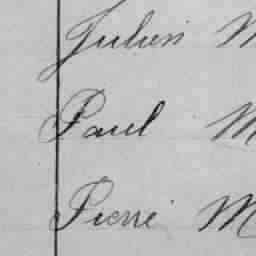 Julien M
Paul M
Pierre M